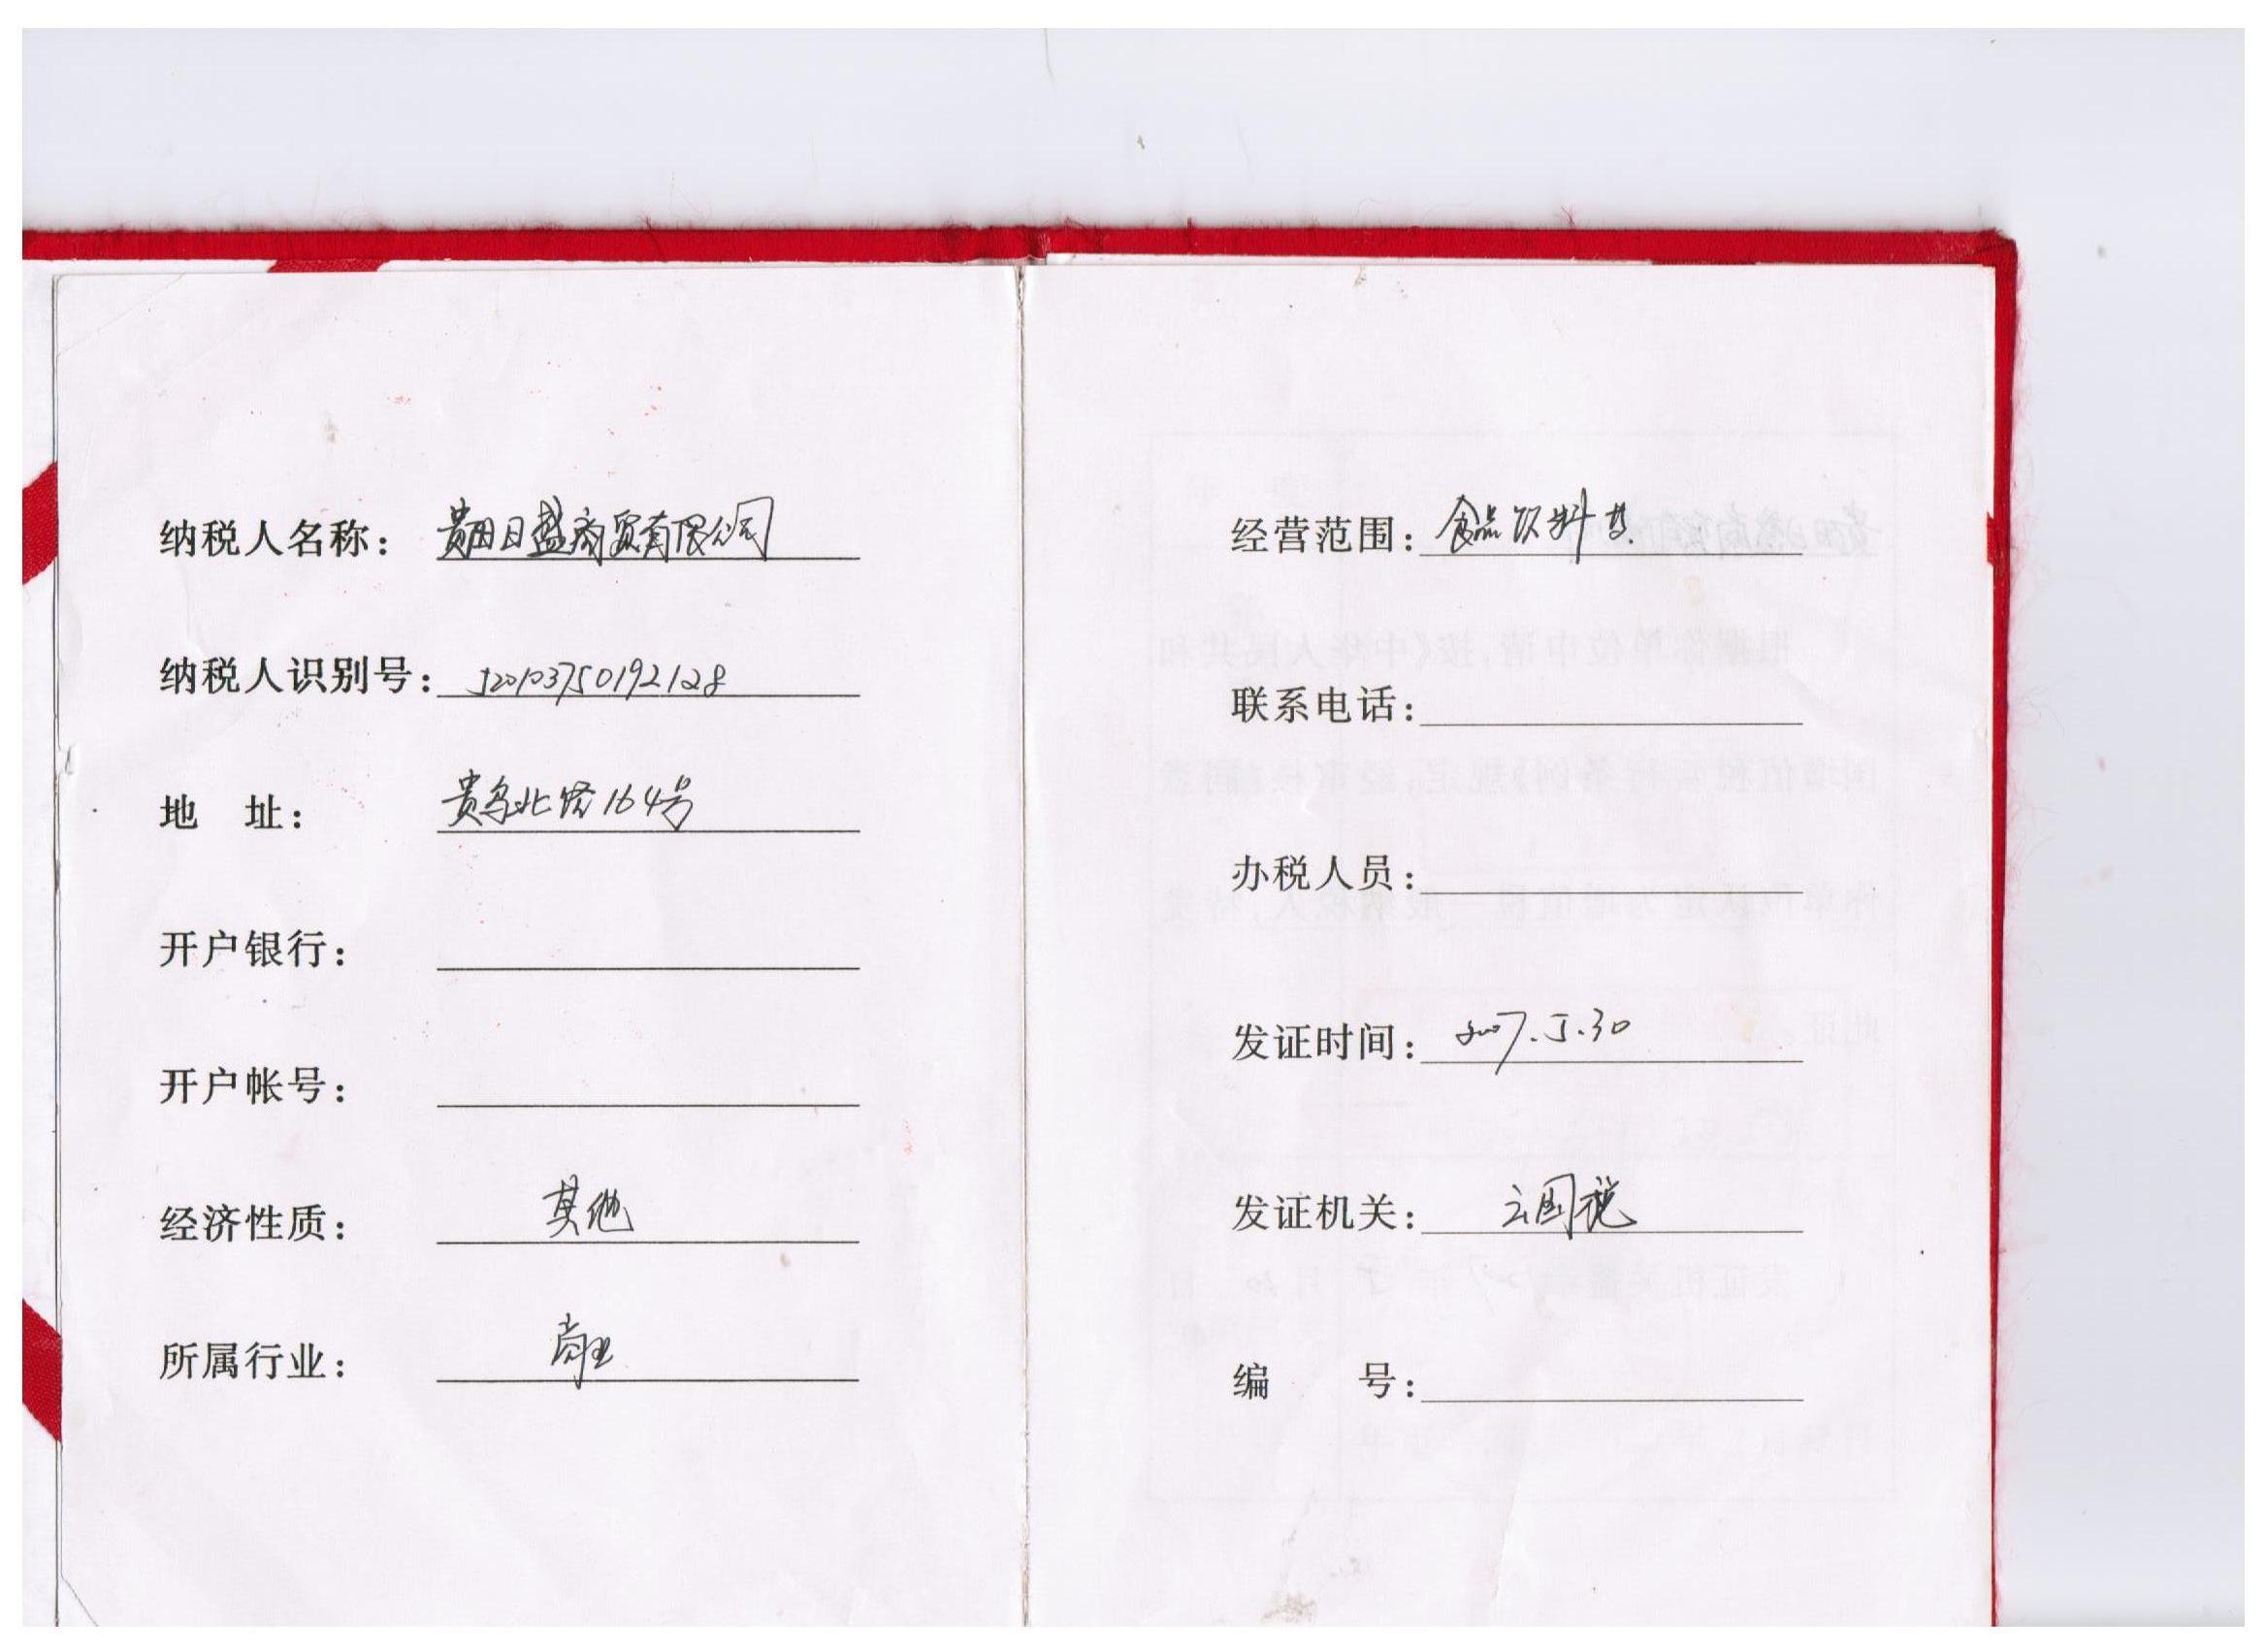 纳税人名称： 贵阳日盛商贸有限公司
纳税人识别号： 520103750192128
地 址： 贵乌北路164号
开户银行：
开户帐号：
经济性质： 其他
所属行业： 商业
经营范围： 食品饮料类
联系电话：
办税人员：
发证时间： 2007.5.30
发证机关： 云国税
编 号：